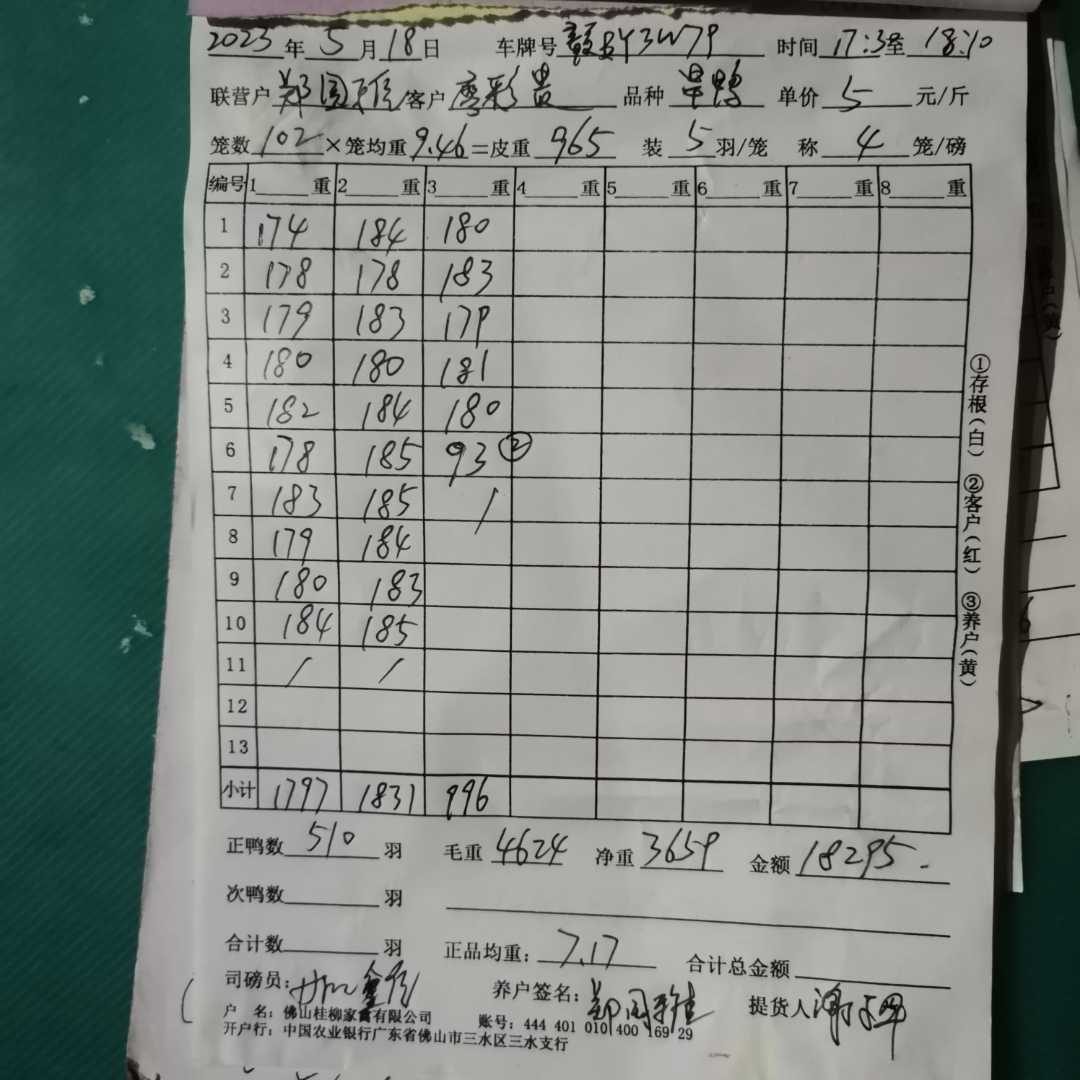 2023年5月18日 车牌号 BY3W79 时间 17:3至18:10
联营户 郑国雅 客户 廖彩贵 品种 旱鸭 单价 5 元/斤
笼数 102 ×笼均重 9.46 =皮重 965 装 5 羽/笼 称 4 笼/磅
编号 1 重 2 重 3 重 4 重 5 重 6 重 7 重 8 重
1 174 184 180
2 178 178 183
3 179 183 179
4 180 180 181
5 182 184 180
6 178 185 93 ②
7 183 185 /
8 179 184
9 180 183
10 184 185
11 / /
12
13
小计 1797 1831 996
正鸭数 510 羽 毛重 4624 净重 3659 金额 18295.
次鸭数 羽
合计数 羽 正品均重: 7.17 合计总金额
司磅员: 养户签名: 郑国雅 提货人
户 名: 佛山桂柳家禽有限公司 账号: 444 401 010 400 169 29
开户行: 中国农业银行广东省佛山市三水区三水支行
①存根(白) ②客户(红) ③养户(黄)